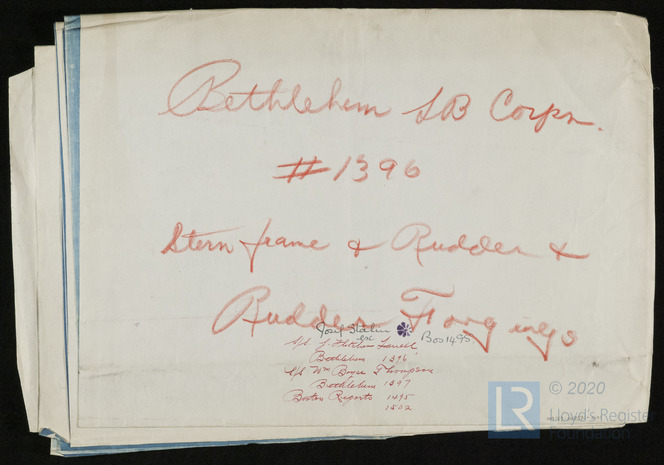 Bethlehem SB Corpn.
#1396
Stern frame & Rudder &
Rudder Forgings
Josif Stalin
ex Bos 1495
S/S J. Fletcher Farrell
Bethlehem 1396
S/S Wm Boyce Thompson
Bethlehem 1397
Boston Reports 1495
1502
© 2020
LR Lloyd's Register
Foundation